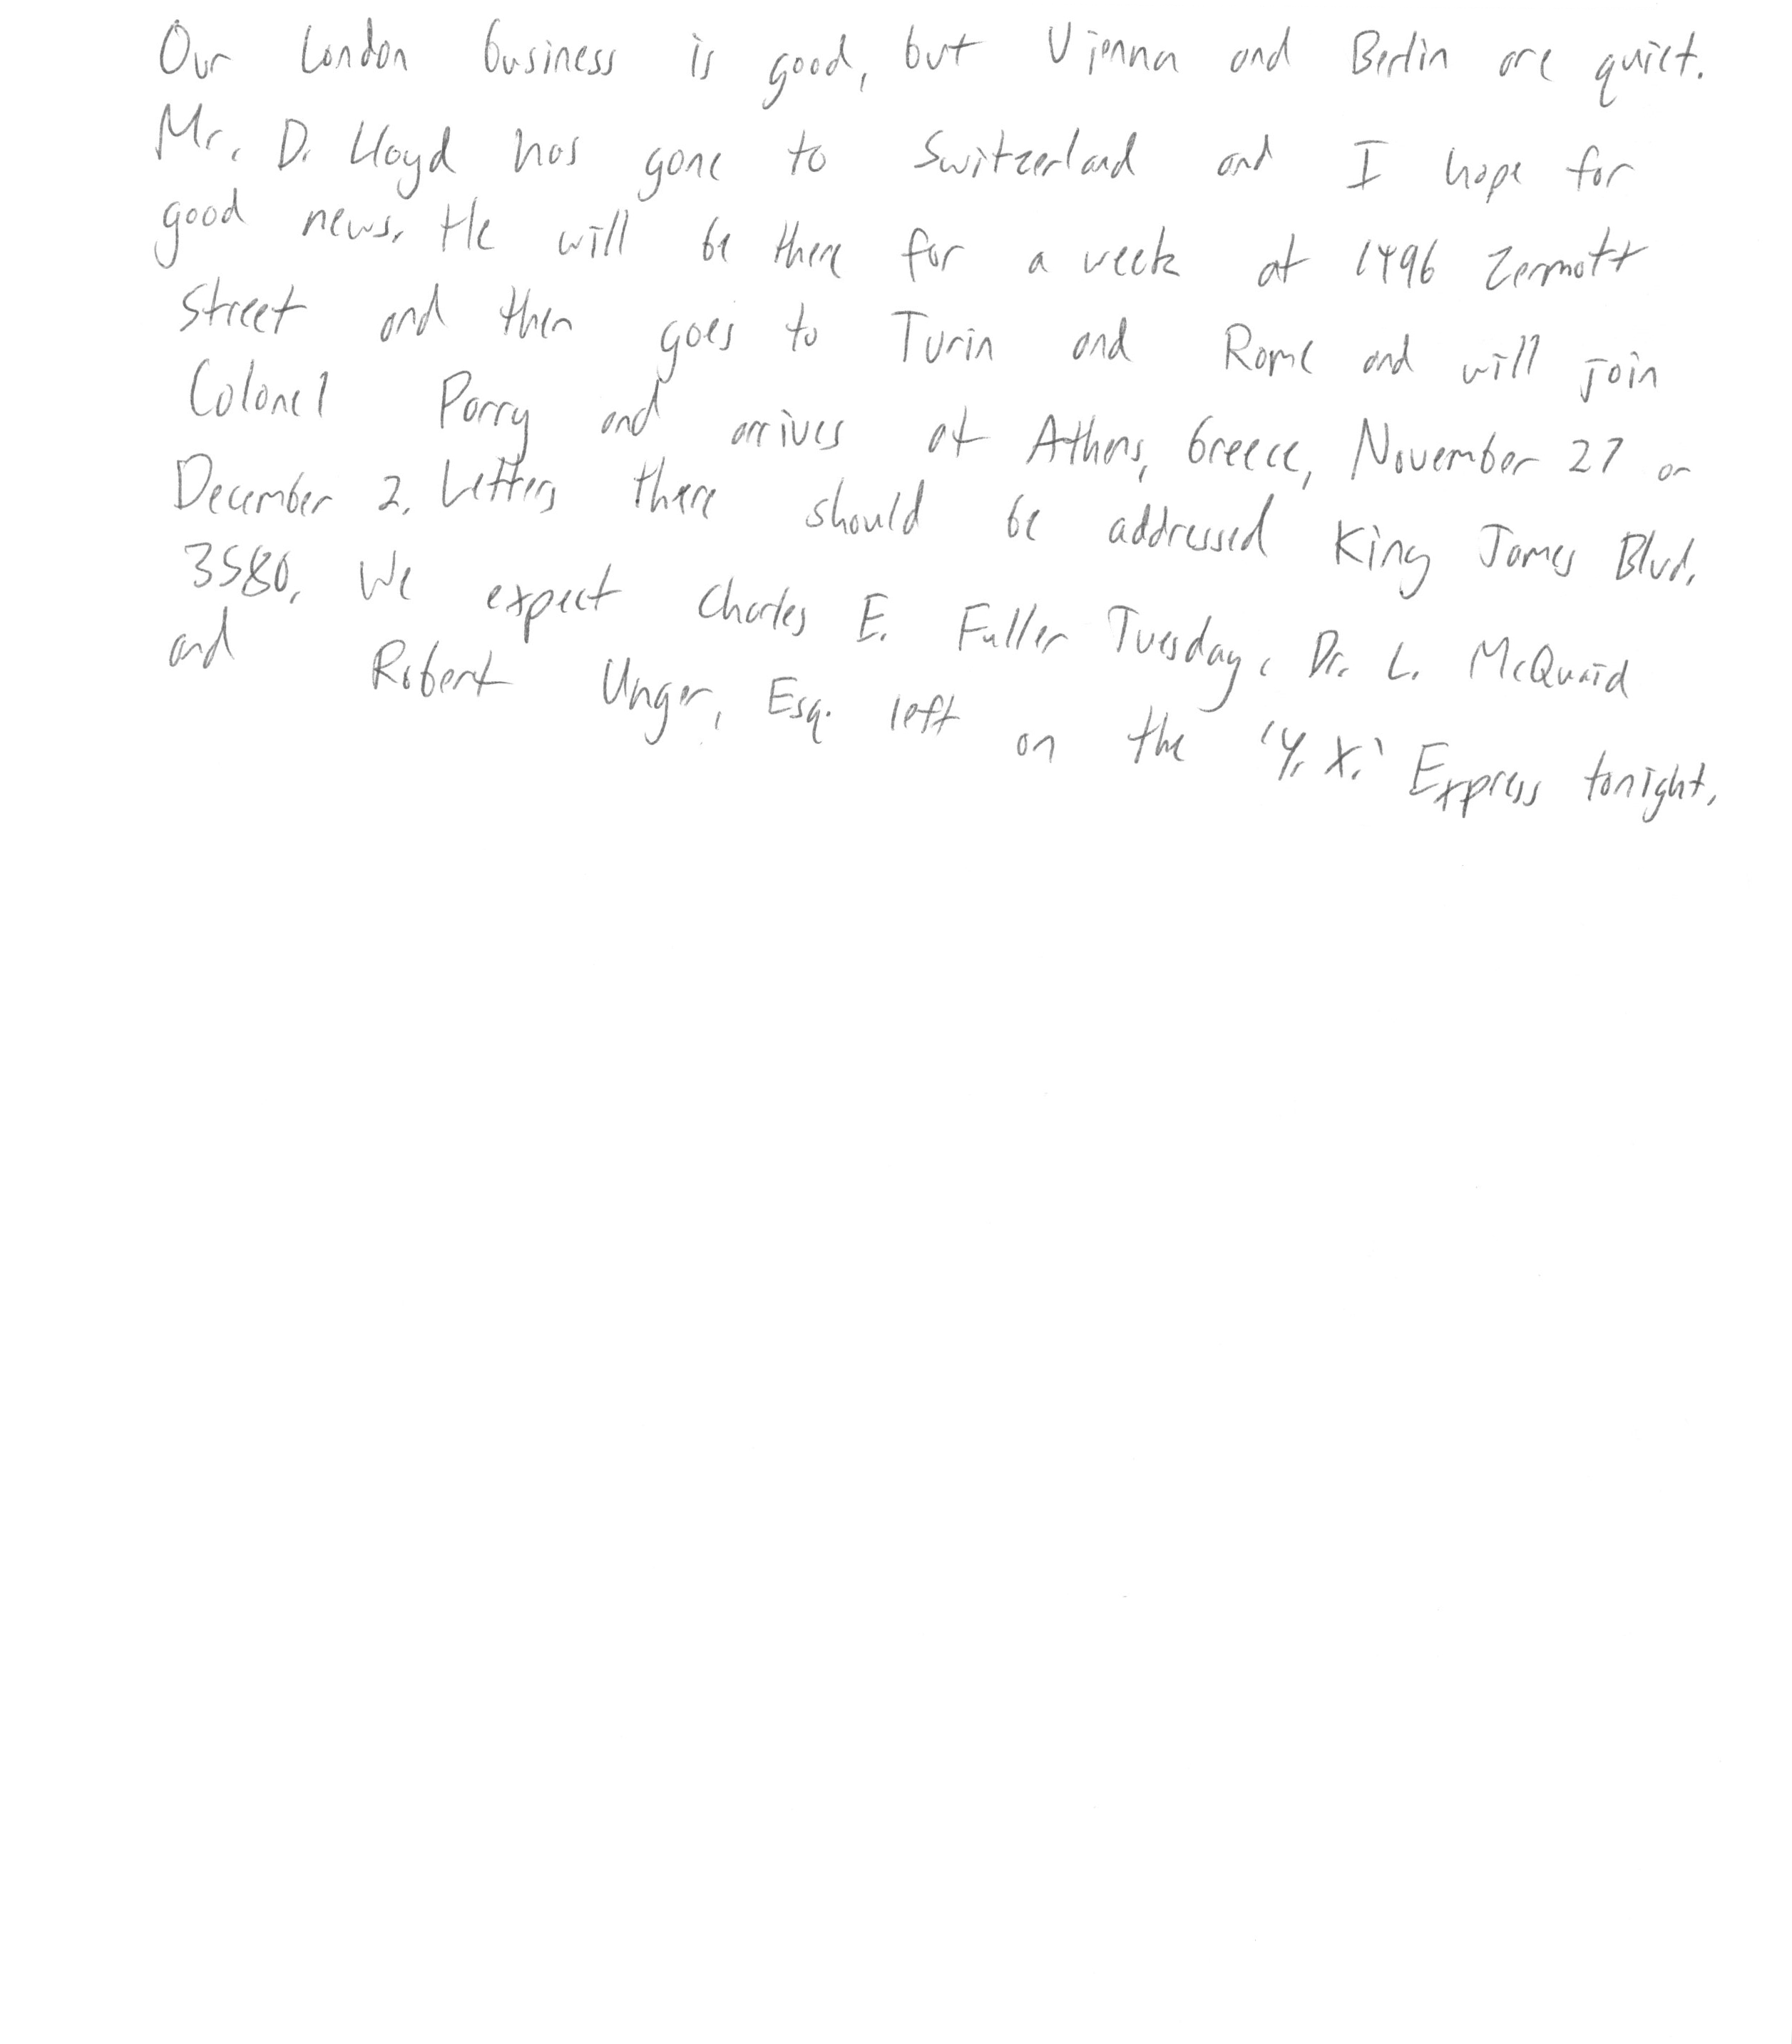 Our London business is good, but Vienna and Berlin are quiet.
Mr. D. Lloyd has gone to Switzerland and I hope for
good news. He will be there for a week at 1496 Zermott
street and then goes to Turin and Rome and will join
Colonel Parry and arrives at Athens, Greece, November 27 or
December 2. Letters there should be addressed King James Blvd.
3580. We expect Charles E. Fuller Tuesday. Dr. L. McQuaid
and Robert Unger, Esq. left on the 'Y. X.' Express tonight.